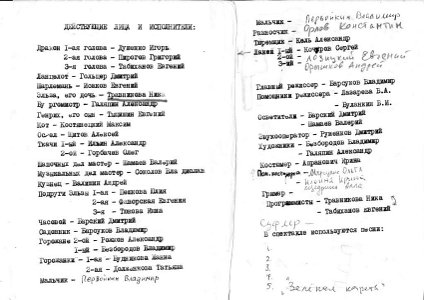 ДЕЙСТВУЮЩИЕ ЛИЦА И ИСПОЛНИТЕЛИ:
Дракон 1-ая голова - Душенко Игорь
2-ая голова - Пирогов Григорий
3-я голова - Табиханов Евгений
Ланцелот - Гольцер Дмитрий
Шарлемань - Исаков Евгений
Эльза, его дочь - Травникова Ника
Бургомистр - Галяпин Александр
Генрих, его сын - Евгений
Кот - Костенецкий Максим
Осел - Алексей
Ткачи 1-ый - Ильин Александр
2-ой - Горбачев Олег
Шапочных дел мастер - Шамаев Валерий
Музыкальных дел мастер - Соколов
Кузнец - Валинин Андрей
Подруги Эльзы 1-ая - Юлия
2-ая - Евгения
3-я - Инна
Часовой - Барский Дмитрий
Садовник - Барсуков Владимир
Горожане 2-ой - Рожков Александр
1-ый - Безбородов Владимир
Горожанки 1-ая - Будникова Жанна
2-ая - Татьяна
Мальчик - Первойкин Владимир
Мальчик - Первойкин Владимир
Разносчик - Орлов Константин
Тюремщик - Кель Александр
Лакеи 1-ый - Кочуров Сергей
2-ой - Лозицкий Евгений
3-ий - Андрей
Главный режиссер - Барсуков Владимир
Помощники режиссера - Лазарева В.А.
Буланкин В.И.
Осветители - Барский Дмитрий
Шамаев Валерий
Звукооператор - Дмитрий
Художники - Безбородов Владимир
- Галяпин Александр
Костюмер - Ирина
Ольга
Ирина
Гример -
Программисты - Травникова Ника
- Табиханов Евгений
В спектакле используются песни:
1.
2.
3.
4.
5. "Зелёная карета"